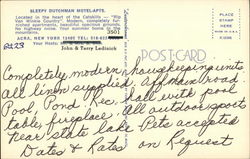 SLEEPY DUTCHMAN MOTEL-APTS.
Located in the heart of the Catskills — "Rip
Van Winkle Country". Modern, completely
furnished, spacious grounds, private pool.
No highway noise. Your
ACRA, NEW YORK 12405 Tel. 518-
Your Hosts:
John & Terry Ledlinick
3501
P223
POSTCARD
PLACE
STAMP
HERE
Completely modern housekeeping units
all linen supplied. Off main road.
Pool, Pond, Rec. hall with pool
table, fireplace. All outdoor sports
Near state lake Pets accepted
Dates & Rates on Request